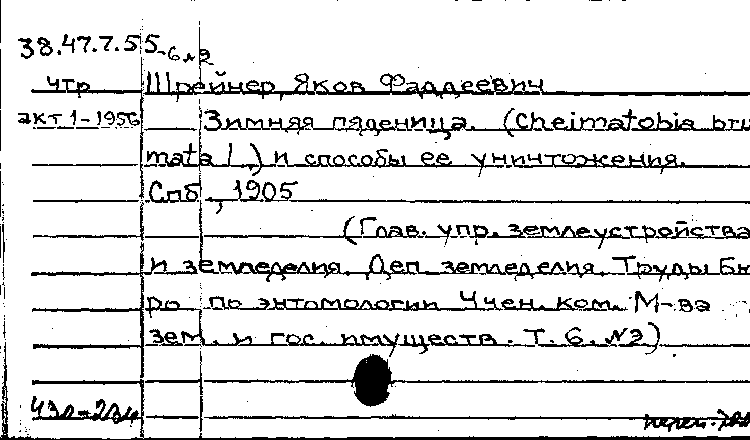 38.47.7.55-6 №2
чтр Шрейнер, Яков Фаддеевич
акт 1-1956 Зимняя пяденица. (Cheimatobia bru
mata l.) и способы ее уничтожения.
Спб., 1905
(Глав. упр. землеустройства
и земледелия. Деп. земледелия. Труды Бю
ро по энтомологии Учен. ком. М-ва
зем. и гос. имуществ. Т. 6. №2)